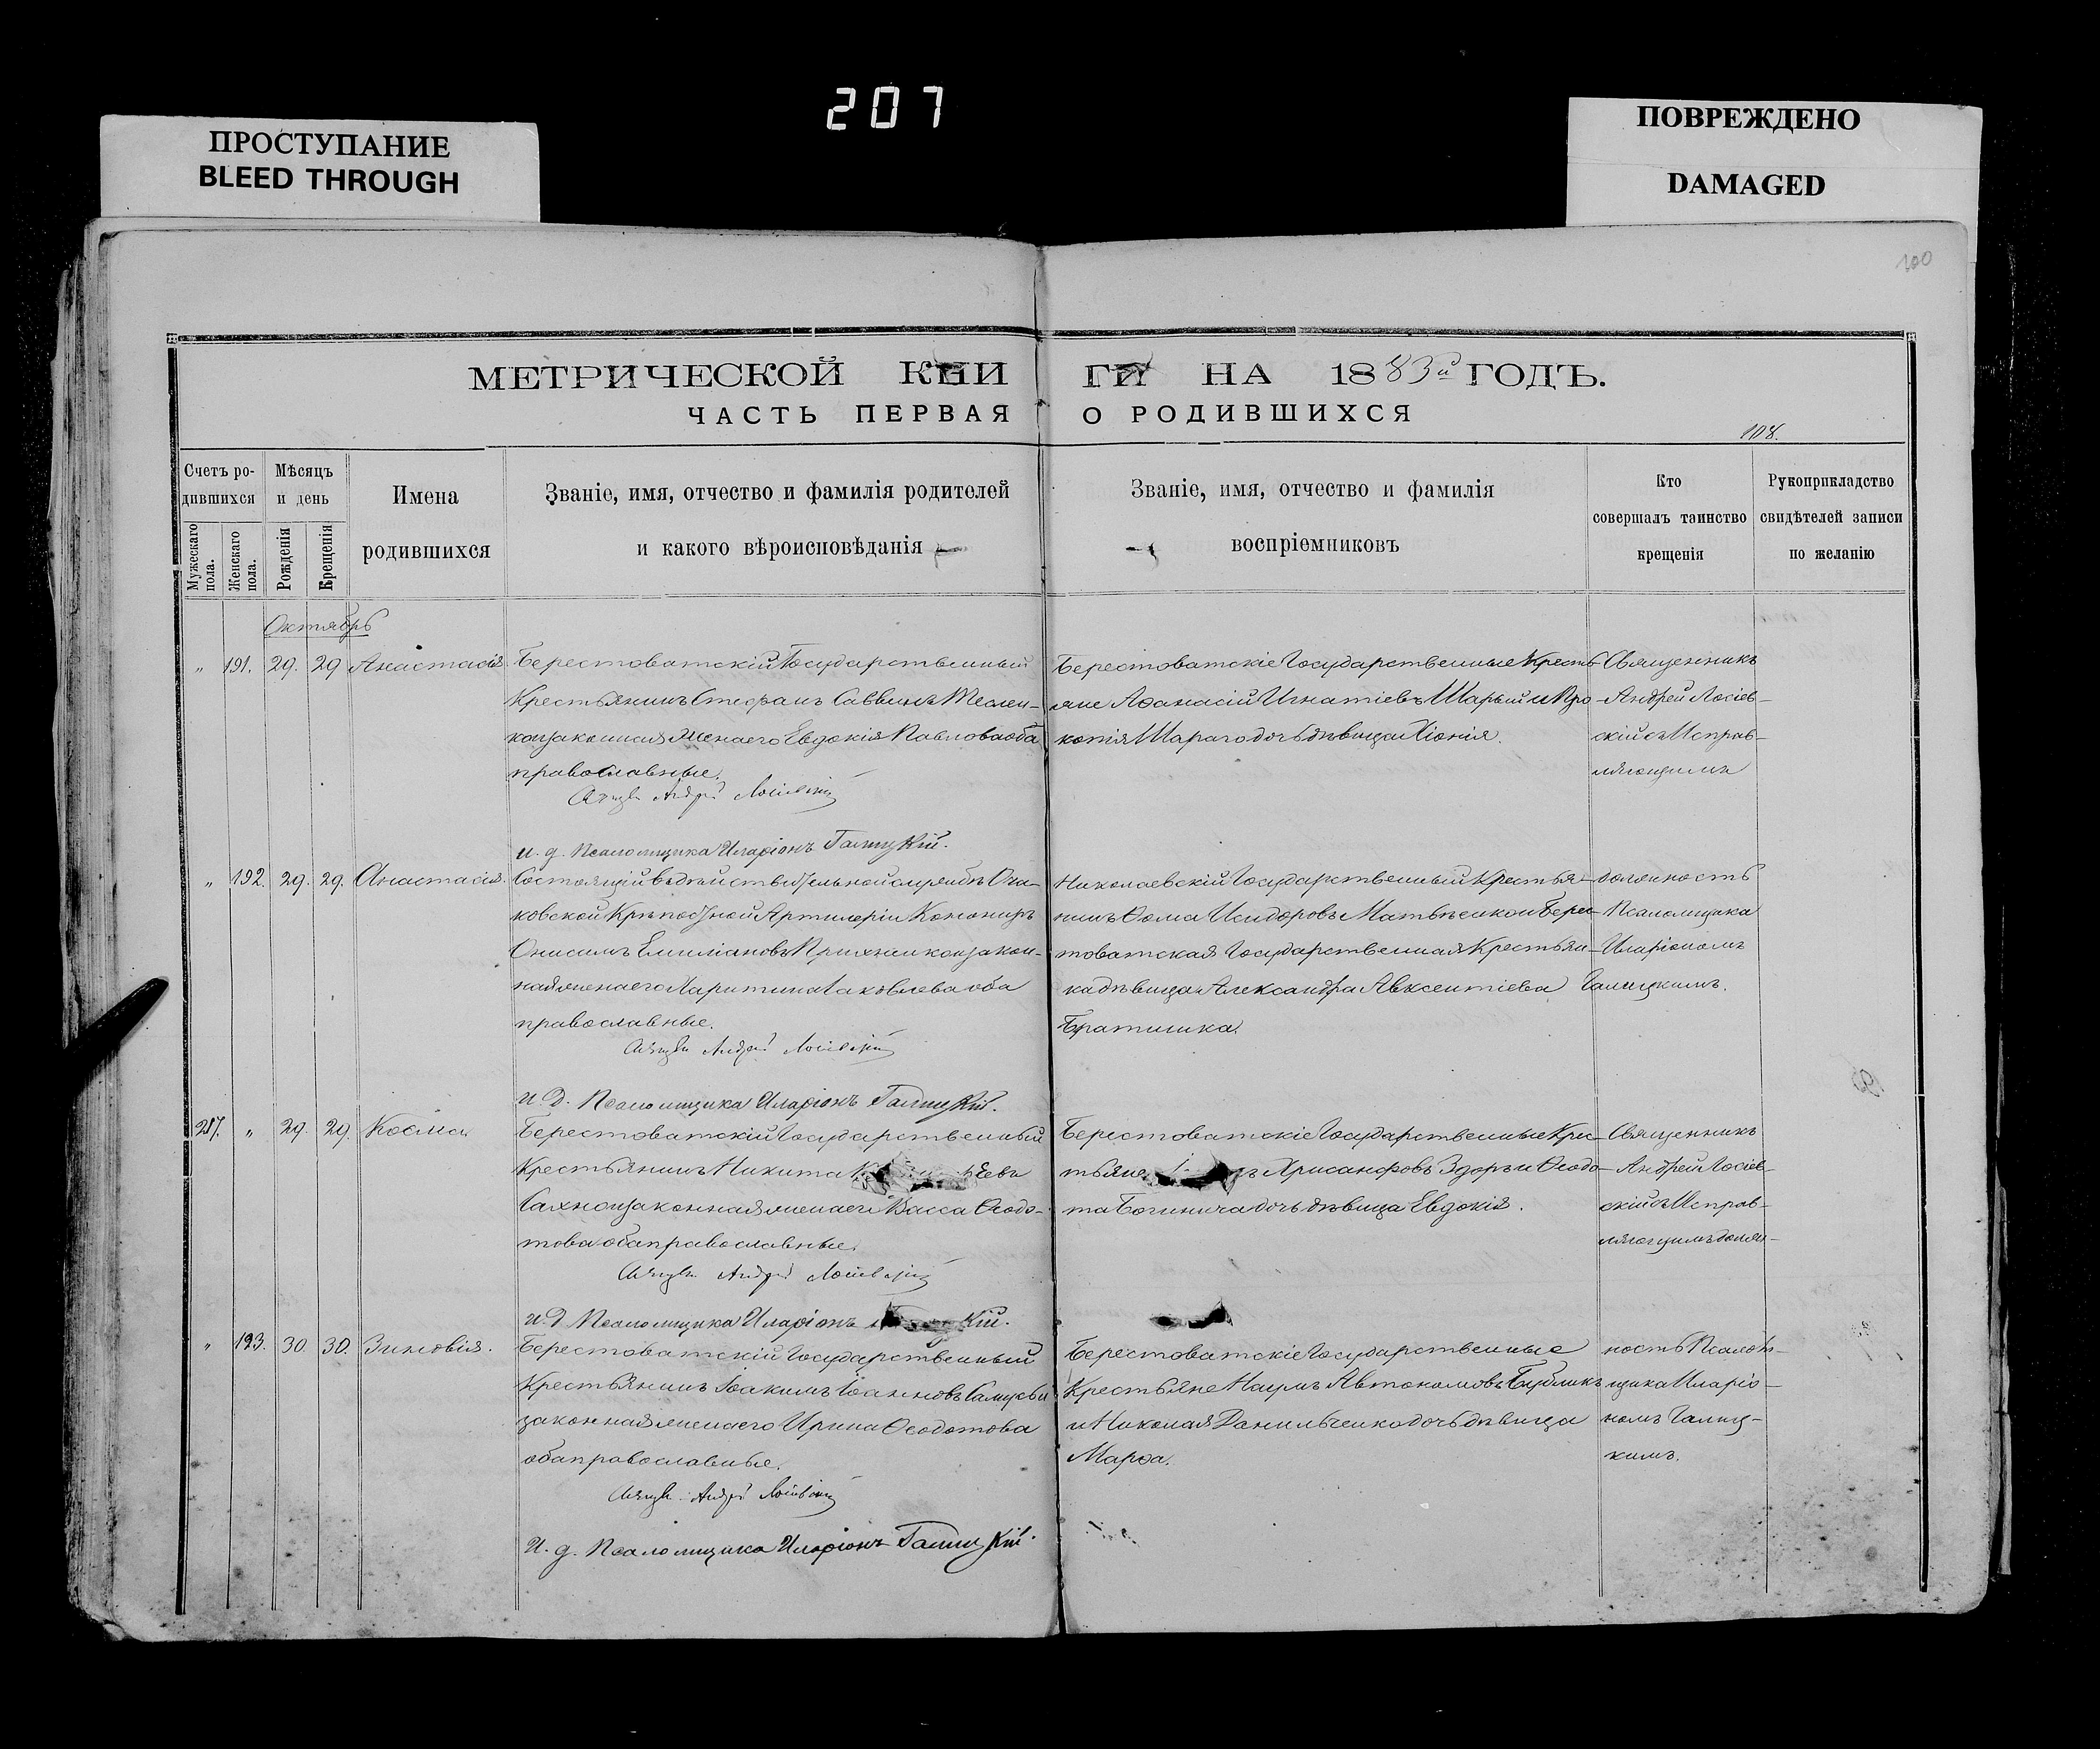 207
ПРОСТУПАНИЕ
BLEED THROUGH
ПОВРЕЖДЕНО
DAMAGED
100
МЕТРИЧЕСКОЙ КНИ
ГИ НА 1883й ГОДЪ.
ЧАСТЬ ПЕРВАЯ
О РОДИВШИХСЯ
108.
Счетъ ро-
дившихся
Мужескаго пола.
Женскаго пола.
Мѣсяцъ
и день
Рожденія
Крещенія
Имена
родившихся
Званіе, имя, отчество и фамилія родителей
и какого вѣроисповѣданія
Званіе, имя, отчество и фамилія
воспріемниковъ
Кто
совершалъ таинство
крещенія
Рукоприкладство
свидѣтелей записи
по желанію
Октябрь
" 191. 29. 29 Анастасія
Берестоватскій Государственный
Крестьянинъ Стефанъ Саввинъ Теслен-
ко и законная жена его Евдокія Павлова оба
православные.
Андрей Лосіевскій
и. д. Псаломщика Иларіонъ Галицкій.
Берестоватскіе Государственные Кресть-
яне Аѳанасій Игнатіевъ Шарый и Про-
копія Шараго дочь дѣвица Хіонія.
Священникъ
Андрей Лосіев-
скій съ Исправ-
ляющимъ
" 192. 29. 29. Анастасія
Состоящій въ дѣйствительной службѣ Оча-
ковской Крѣпостной Артилеріи Канониръ
Онисимъ Емиліановъ Прихненко и закон-
ная жена его Харитина Іаковлева оба
православные.
Андрей Лосіевскій
и. д. Псаломщика Иларіонъ Галицкій.
Николаевскій Государственный Крестья-
нинъ Ѳома Исидоровъ Матвѣенко и Берес-
товатская Государственная Крестьян-
ка дѣвица Александра Авксентіева
Братишка.
должность
Псаломщика
Иларіономъ
Галицкимъ.
217. " 29. 29. Косма
Берестоватскій Государственный
Крестьянинъ Никита
Сахно и законная жена его Васса Ѳеодо-
това оба православные.
Андрей Лосіевскій
и. д. Псаломщика Иларіонъ
Берестоватскіе Государственные Крес-
тьяне Хрисанфовъ Здоръ и Ѳеодо-
та Богинича дочь дѣвица Евдокія.
Священникъ
Андрей Лосіев-
скій съ Исправ-
ляющимъ долж-
" 193. 30. 30. Зиновія.
Берестоватскій Государственный
Крестьянинъ Іоакимъ Іоанновъ
законная жена его Ирина Ѳеодотова
оба православные.
Андрей Лосіевскій
И. д. Псаломщика Иларіонъ Галицкій.
Берестоватскіе Государственные
Крестьяне Наумъ Автономовъ Бубликъ
и Николая Данильченко дочь дѣвица
Марѳа.
ность Псалом-
щика Иларіо-
номъ Галиц-
кимъ.